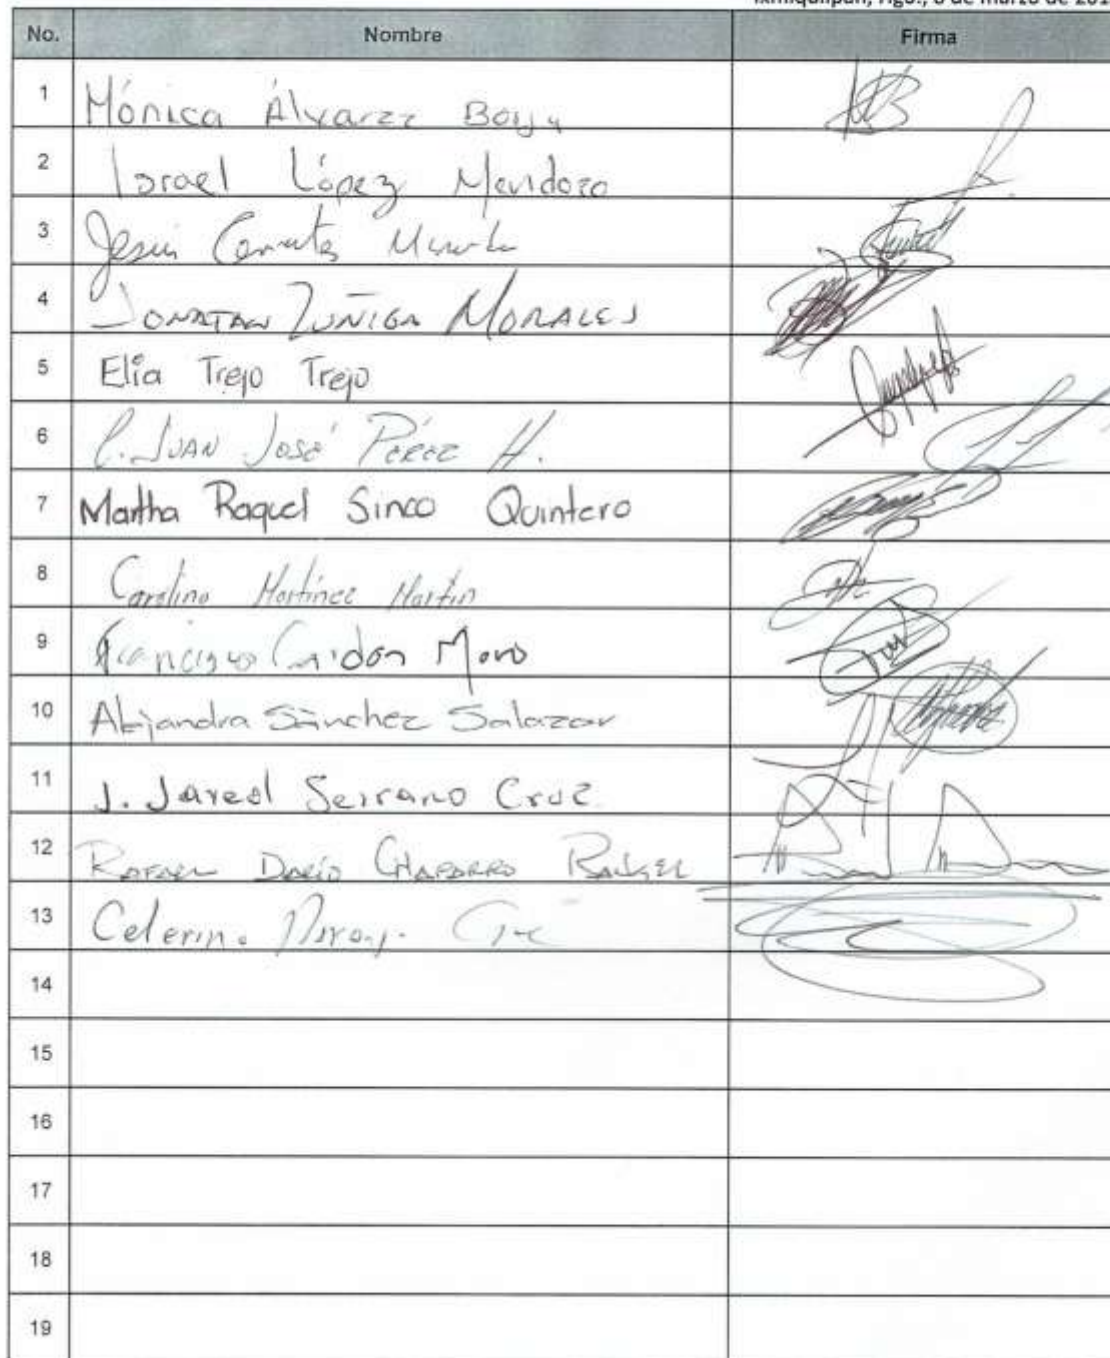 Ixmiquilpan, Hgo., 8 de marzo de 201
No. Nombre Firma
1 Mónica Álvarez Borja
2 Israel López Mendoza
3 Jesús
4 Jonatan Zúñiga Morales
5 Elia Trejo Trejo
6 Juan José Pérez H.
7 Martha Raquel Sinco Quintero
8 Carolina Martínez Martin
9 Francisco
10 Alejandra Sánchez Salazar
11 J. Jared Serrano Cruz
12 Rafael Darío Chaparro Rangel
13
14
15
16
17
18
19